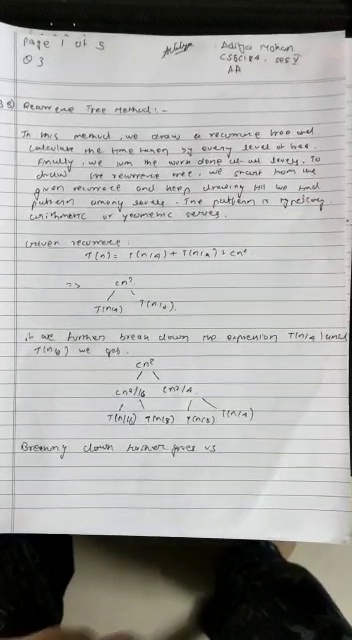 Page 1 of 5
Aditya Mohan
Q 3
CSE
AA
Recurrence Tree Method :-
In this method, we draw a recurrence tree and
calculate the time taken by every level of tree.
Finally, we sum the work done at all levels. To
draw the recurrence tree, we start from the
given recurrence and keep drawing till we find
pattern among levels. The pattern is typically
arithmetic or geometric series.
Given recurrence:
=>
cn²
T(n/4)
if we further break down the expression T(n/4) and
we get.
cn²
cn²/16 cn²/4
T(n/16) T(n/8) T(n/8) T(n/4)
Breaking down further gives us